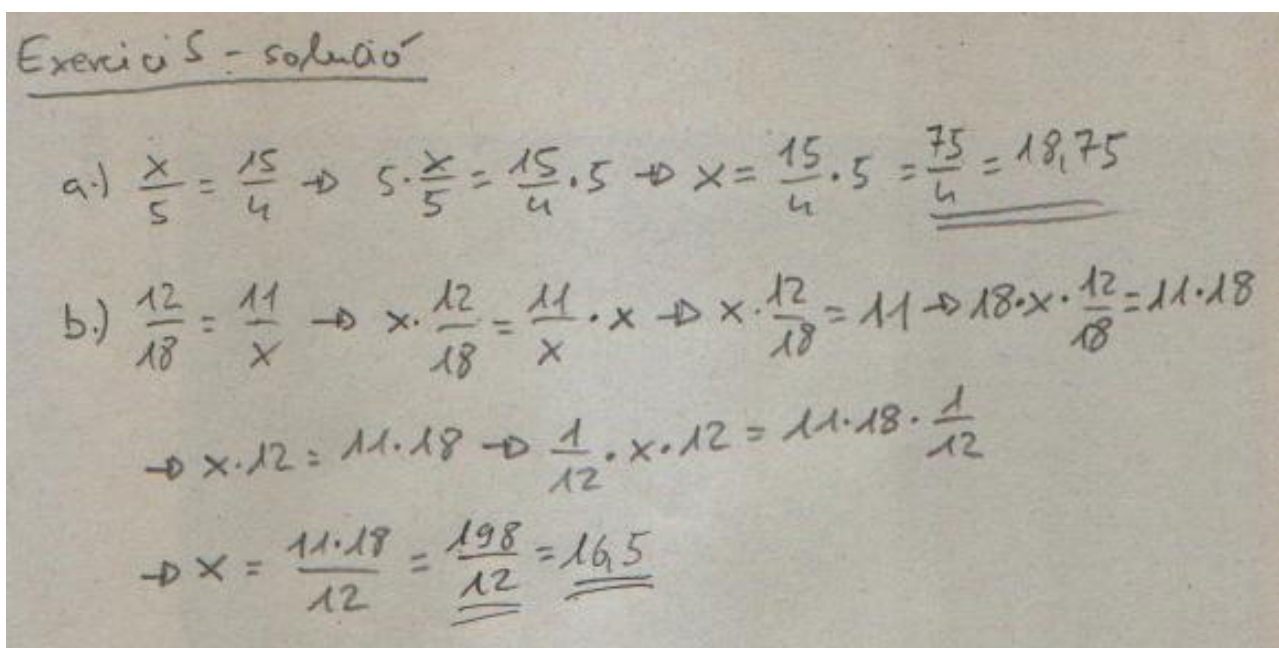 Exercici 5 - solució
a.) x/5 = 15/4 → 5·x/5 = 15/4·5 → x = 15/4·5 = 75/4 = 18,75
b.) 12/18 = 11/x → x·12/18 = 11/x·x → x·12/18 = 11 → 18·x·12/18 = 11·18
→ x·12 = 11·18 → 1/12·x·12 = 11·18·1/12
→ x = 11·18/12 = 198/12 = 16,5